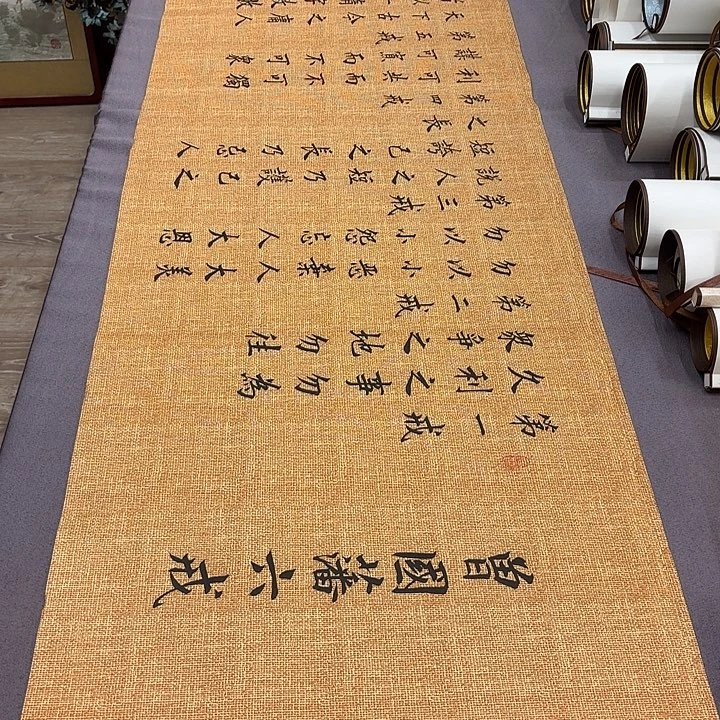 曾國藩六戒
第一戒
久利之事勿為
衆爭之地勿往
第二戒
勿以小惡棄人大美
勿以小怨忘人大恩
第三戒
說人之短乃護己之
短誇己之長乃忌人
之長
第四戒
利可共而不可獨
謀可寡而不可衆
第五戒
天下古今之庸人